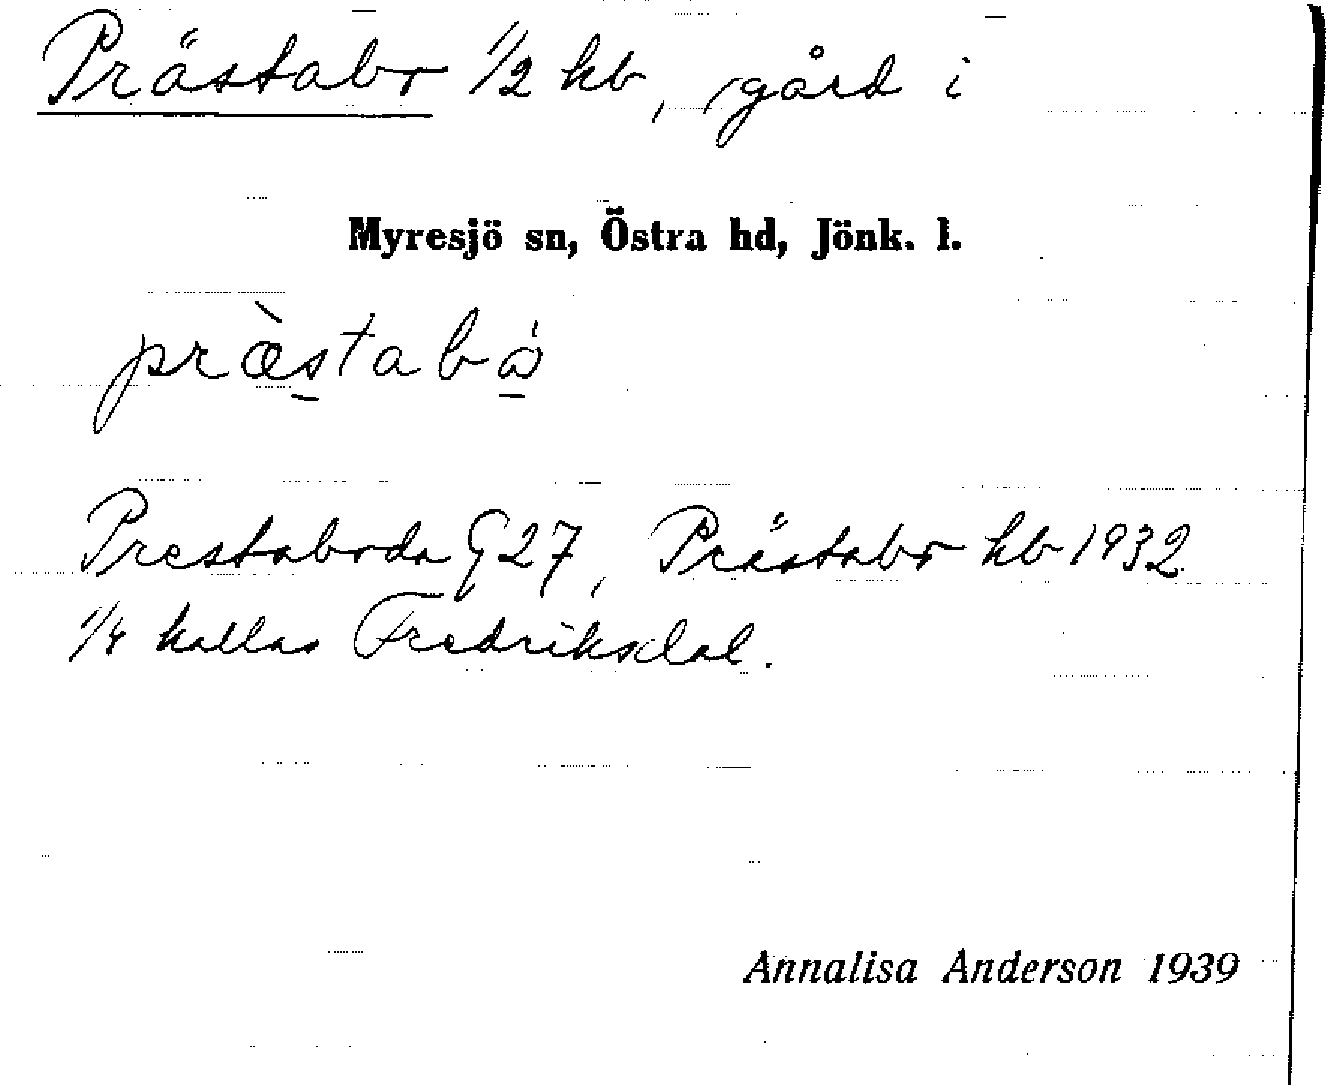 Prästabo 1/2 hb, gård i
Myresjö sn, Östra hd, Jönk. l.
præ̀stabɷ̀
Prestaboda G 27, Prästabo hb 1932
1/4 kallas Fredriksdal.
Annalisa Anderson 1939